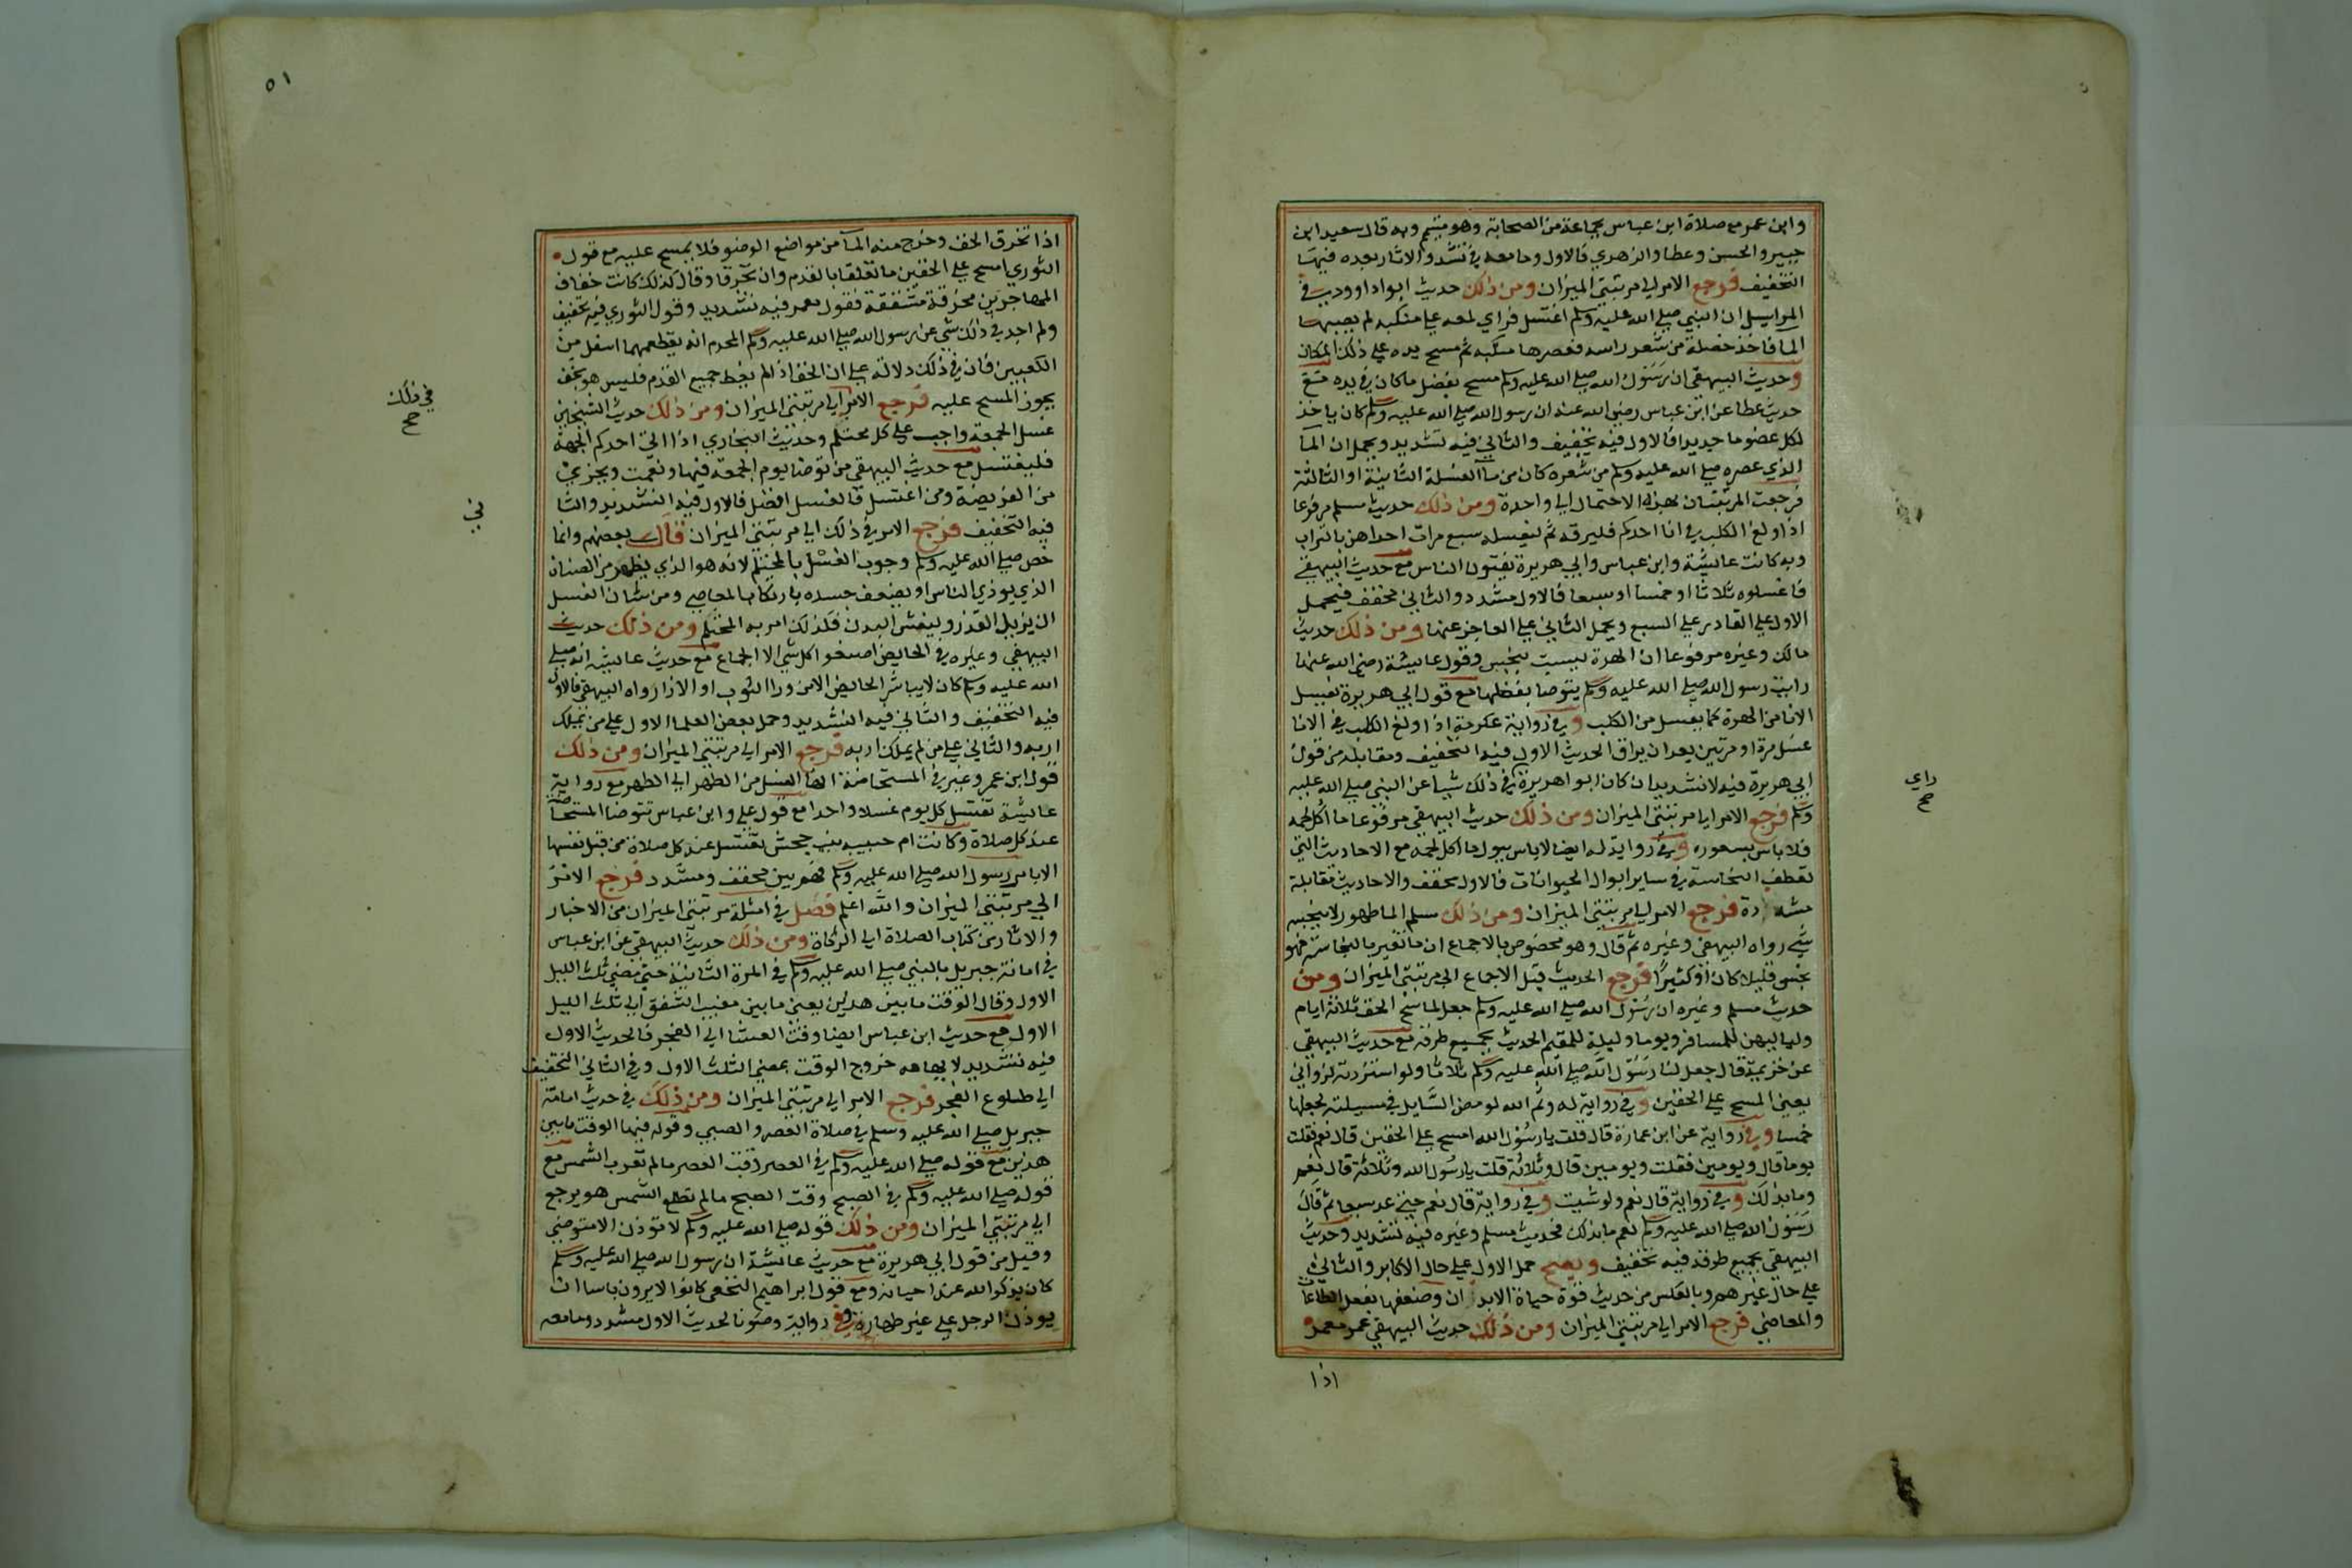 وابن عمر مع صلاة ابن عباس بجماعة من الصحابة وهو متيم وبه قال سعيد ابن
جبير والحسن وعطا والزهري فالاول وما معه في تشدد والاثار بعده فيها
التخفيف فرجع الامر الي مرتبتي الميزان ومن ذلك حديث ابوا داوود في
المراسيل ان النبي صلي الله عليه وسلم اغتسل فراي لمعه علي منكبه لم يصبها
الما فاخذ خصلة من شعر راسه فعصرها منكبه ثم مسح يده علي ذلك المكان
وحديث البيهقي ان رسول الله صلي الله عليه وسلم مسح بفضل ما كان في يده مع
حديث عطا عن ابن عباس رضي الله عنه ان رسول الله صلي الله عليه وسلم كان ياخذ
لكل عضو ما جديدا فالاول فيه تخفيف والثاني فيه تشديد ويحمل ان المآ
الذي عصره صلي الله عليه وسلم من شعره كان من مآ الغسلة الثانية او الثالثة
فرجعت المرتبتان بهذا الاحتمال الي واحدة ومن ذلك حديث مسلم مرفوعا
اذا ولغ الكلب في انا احدكم فليرقه ثم ليغسله سبع مرات احداهن بالتراب
وبه كانت عايشة وابن عباس وابي هريرة يفتون الناس مع حديث البيهقي
فاغسلوه ثلاثا او خمسا او سبعا فالاول مشدد والثاني مخفف فيحمل
الاول علي القادر علي السبع ويحمل الثاني علي العاجز عنها ومن ذلك حديث
مالك وغيره مرفوعا ان الهرة ليست بنجس وقول عايشة رضي الله عنها
رايت رسول الله صلي الله عليه وسلم يتوضا بفضلها مع قول ابي هريرة يغسل
الانا من الهرة كما يغسل من الكلب وفي رواية عكرمة اذا ولغ الكلب في الانا
غسل مرة او مرتين بعد ان يراق الحديث الاول فيه التخفيف ومقابله من قول
ابي هريرة فيه لا تشديد ان كان ابوا هريرة في ذلك شيا عن النبي صلي الله عليه
وسلم فرجع الامر الي مرتبتي الميزان ومن ذلك حديث البيهقي مرفوعا ما اكل لحمه
فلا باس بسعوره وفي رواية له ايضا لا باس ببول ما اكل لحمه مع الاحاديث التي
تعطف النجاسة في ساير ابوال الحيوانات فالاول مخفف والاحاديث مقابلة
مشددة فرجع الامر الي مرتبتي الميزان ومن ذلك مسلم الما طهور لا ينجسه
شي رواه البيهقي وغيره ثم قال وهو مخصوص بالاجماع ان ما تغير بالنجاسة فهو
نجس قليلا كان او كثيرا فرجع الحديث قبل الاجماع الي مرتبتي الميزان ومن
حديث مسلم وغيره ان رسول الله صلي الله عليه وسلم جعل لماسح الخف ثلاثة ايام
ولياليهن للمسافر ويوما وليلة للمقيم الحديث بجميع طرقه مع حديث البيهقي
عن خزيمة قال جعل لنا رسول الله صلي الله عليه وسلم ثلاثا ولو استزدته لزادني
يعني المسح علي الخفين وفي رواية له وئم الله لو مضي السايل في مسيلته لجعلها
خمسا وفي رواية عن ابن عمارة قال قلت يا رسول الله امسح علي الخفين قال نعم فقلت
يوما قال ويومين فقلت ويومين قال وثلاثة قلت يا رسول الله وثلاثة قال نعم
وما بدا لك وفي رواية قال نعم ولو شيت وفي رواية قال نعم حتي عد سبعا ثم قال
رسول الله صلي الله عليه وسلم نعم ما بدا لك فحديث مسلم وغيره فيه تشديد وحديث
البيهقي بجميع طرقه فيه تخفيف ويصح حمل الاول علي حال الاكابر والثاني
علي حال غيرهم وبالعكس من حديث قوة حياة الابدان وضعفها بفعل الطاعات
والمعاصي فرجع الامر الي مرتبتي الميزان ومن ذلك حديث البيهقي عمر معمر
اذا
راي
صح
٥١
اذا تخرق الخف وخرج منه المآ من مواضع الوضو فلا يمسح عليه مع قول
الثوري امسح علي الخفين ما تعلقا بالقدم وان تخرقا وقال كذلك كانت خفاف
المهاجرين مخرقة مشققة فقول معمر فيه تشديد وقول الثوري فيه تخفيف
ولم اجد في ذلك شي عن رسول الله صلي الله عليه وسلم المحرم انه يقطعهما اسفل من
الكعبين فان في ذلك دلالة علي ان الخف اذ الم يغط جميع القدم فليس هو بخف
يجوز المسح عليه فرجع الامر الي مرتبتي الميزان ومن ذلك حديث الشيخين
غسل الجمعة واجب علي كل محتلم وحديث البخاري اذا اتي احدكم الجمعة
فليغتسل مع حديث البيهقي من توضا يوم الجمعة فبها ونعمت ويجزي
من الفريضة ومن اغتسل فالغسل افضل فالاول فيه التشديد والثا
فيه التخفيف فرجع الامر في ذلك الي مرتبتي الميزان قال بعضهم وانما
خص صلي الله عليه وسلم وجوب الغسل بالمحتلم لانه هو الذي يظهر من الصنان
الذي يوذي الناس او يضعف جسده بارتكاب المعاصي ومن شان الغسل
ان يزيل القذر وينعش البدن فلذلك امر به المحتلم ومن ذلك حديث
البيهقي وغيره في الحايض اصنعوا كل شي الا الجماع مع حديث عايشه انه صلي
الله عليه وسلم كان لا يباشر الحايض الا من ورا الثوب او الازار رواه البيهقي فالاول
فيه التخفيف والثاني فيه التشديد وحمل بعض العلما الاول علي من يملك
اربه والثاني علي من لم يملك اربه فرجع الامر الي مرتبتي الميزان ومن ذلك
قول ابن عمر وغيره في المستحاضة انها تغتسل من الطهر الي الطهر مع رواية
عايشة تغتسل كل يوم غسلا واحدا مع قول علي وابن عباس تتوضا المستحاضة
عند كل صلاة وكانت ام حبيبه بنت جحش تغتسل عند كل صلاة من قبل نفسها
الا بامر رسول الله صلي الله عليه وسلم فهو بين مخفف ومشدد فرجع الامر
الي مرتبتي الميزان والله اعلم فصل في امثلة مرتبتي الميزان من الاخبار
والاثار من كتاب الصلاة الي الزكاة ومن ذلك حديث البيهقي عن ابن عباس
في امامة جبريل بالنبي صلي الله عليه وسلم في المرة الثانية حين مضي ثلث الليل
الاول وقال الوقت ما بين هذين يعني ما بين مغيب الشفق الي ثلث الليل
الاول مع حديث ابن عباس ايضا وقت العشا الي الفجر فالحديث الاول
فيه تشديد لايهامه خروج الوقت بمضي الثلث الاول وفي الثاني التخفيف
الي طلوع الفجر فرجع الامر الي مرتبتي الميزان ومن ذلك في حديث امامة
جبريل صلي الله عليه وسلم في صلاة العصر والصبح وقوله فيها الوقت ما بين
هذين مع قوله صلي الله عليه وسلم في العصر وقت العصر ما لم تغرب الشمس مع
قوله صلي الله عليه وسلم في الصبح وقت الصبح ما لم تطلع الشمس هو يرجع
الي مرتبتي الميزان ومن ذلك قوله صلي الله عليه وسلم لا توذن الا متوضي
وقيل من قول ابي هريرة مع حديث عايشة ان رسول الله صلي الله عليه وسلم
كان يذكر الله عند احيانه ومع قول ابراهيم النخعي كانوا لا يرون باسا ان
يوذن الرجل علي غير طهارة وفي رواية وضو فالحديث الاول مشدد وما معه
في ذلك
صح
ني